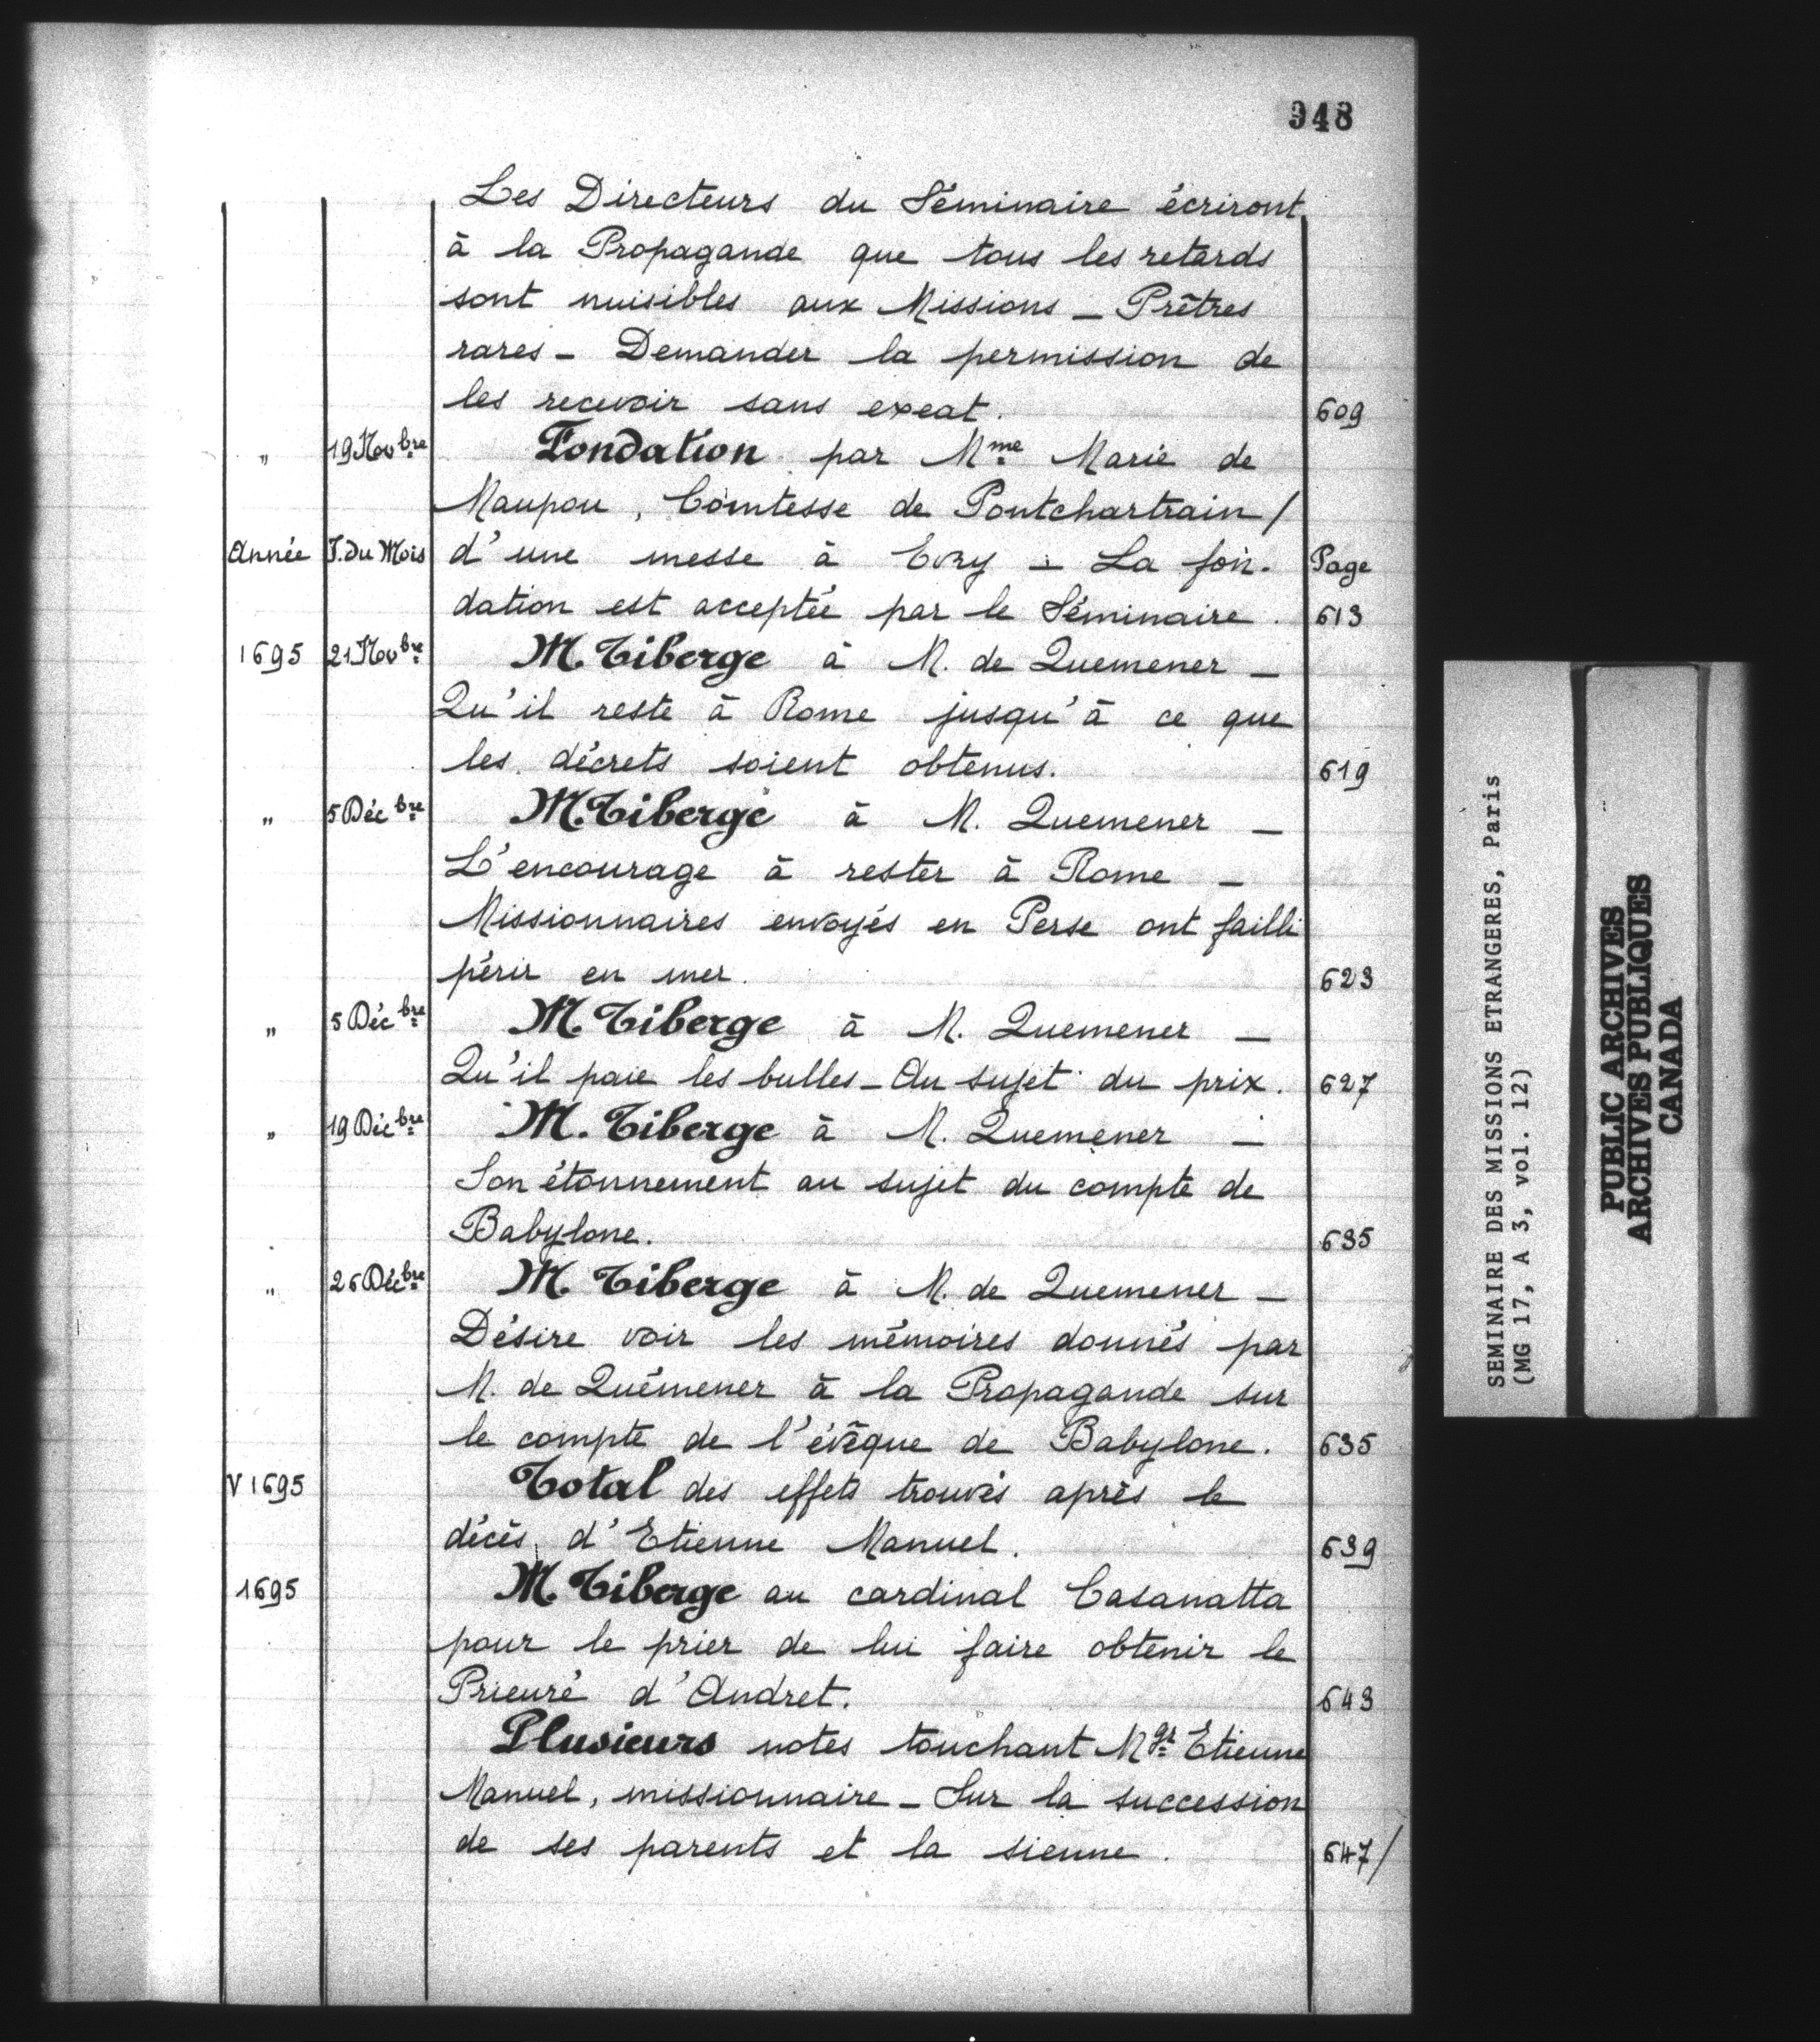 948
Les Directeurs du Séminaire écriront
à la Propagande que tous les retards
sont nuisibles aux Missions _ Prêtres
rares _ Demander la permission de
les recevoir sans exeat. 609
" 19 Novbre Fondation par Mme Marie de
Maupou, Comtesse de Pontchartrain /
Année J. du Mois d'une messe à Evry _ La fon- Page
dation est acceptée par le Séminaire. 613
1695 21 Novbre M. Tiberge à M. de Quemener _
Qu'il reste à Rome jusqu'à ce que
les décrets soient obtenus. 619
" 5 Décbre M. Tiberge à M. Quemener _
L'encourage à rester à Rome _
Missionnaires envoyés en Perse ont failli
périr en mer. 623
" 5 Décbre M. Tiberge à M. Quemener _
Qu'il paie les bulles _ Au sujet du prix. 627
" 19 Décbre M. Tiberge à M. Quemener _
Son étonnement au sujet du compte de
Babylone. 635
" 26 Décbre M. Tiberge à M. de Quemener _
Désire voir les mémoires donnés par
M. de Quémener à la Propagande sur
le compte de l'évêque de Babylone. 635
V 1695 Total des effets trouvés après le
décès d'Etienne Manuel. 639
1695 M. Tiberge au cardinal Casanatta
pour le prier de lui faire obtenir le
Prieuré d'Andret. 643
Plusieurs notes touchant Mgr Etienne
Manuel, missionnaire _ Sur la succession
de ses parents et la sienne. 647/
SEMINAIRE DES MISSIONS ETRANGERES, Paris
(MG 17, A 3, vol. 12)
PUBLIC ARCHIVES
ARCHIVES PUBLIQUES
CANADA